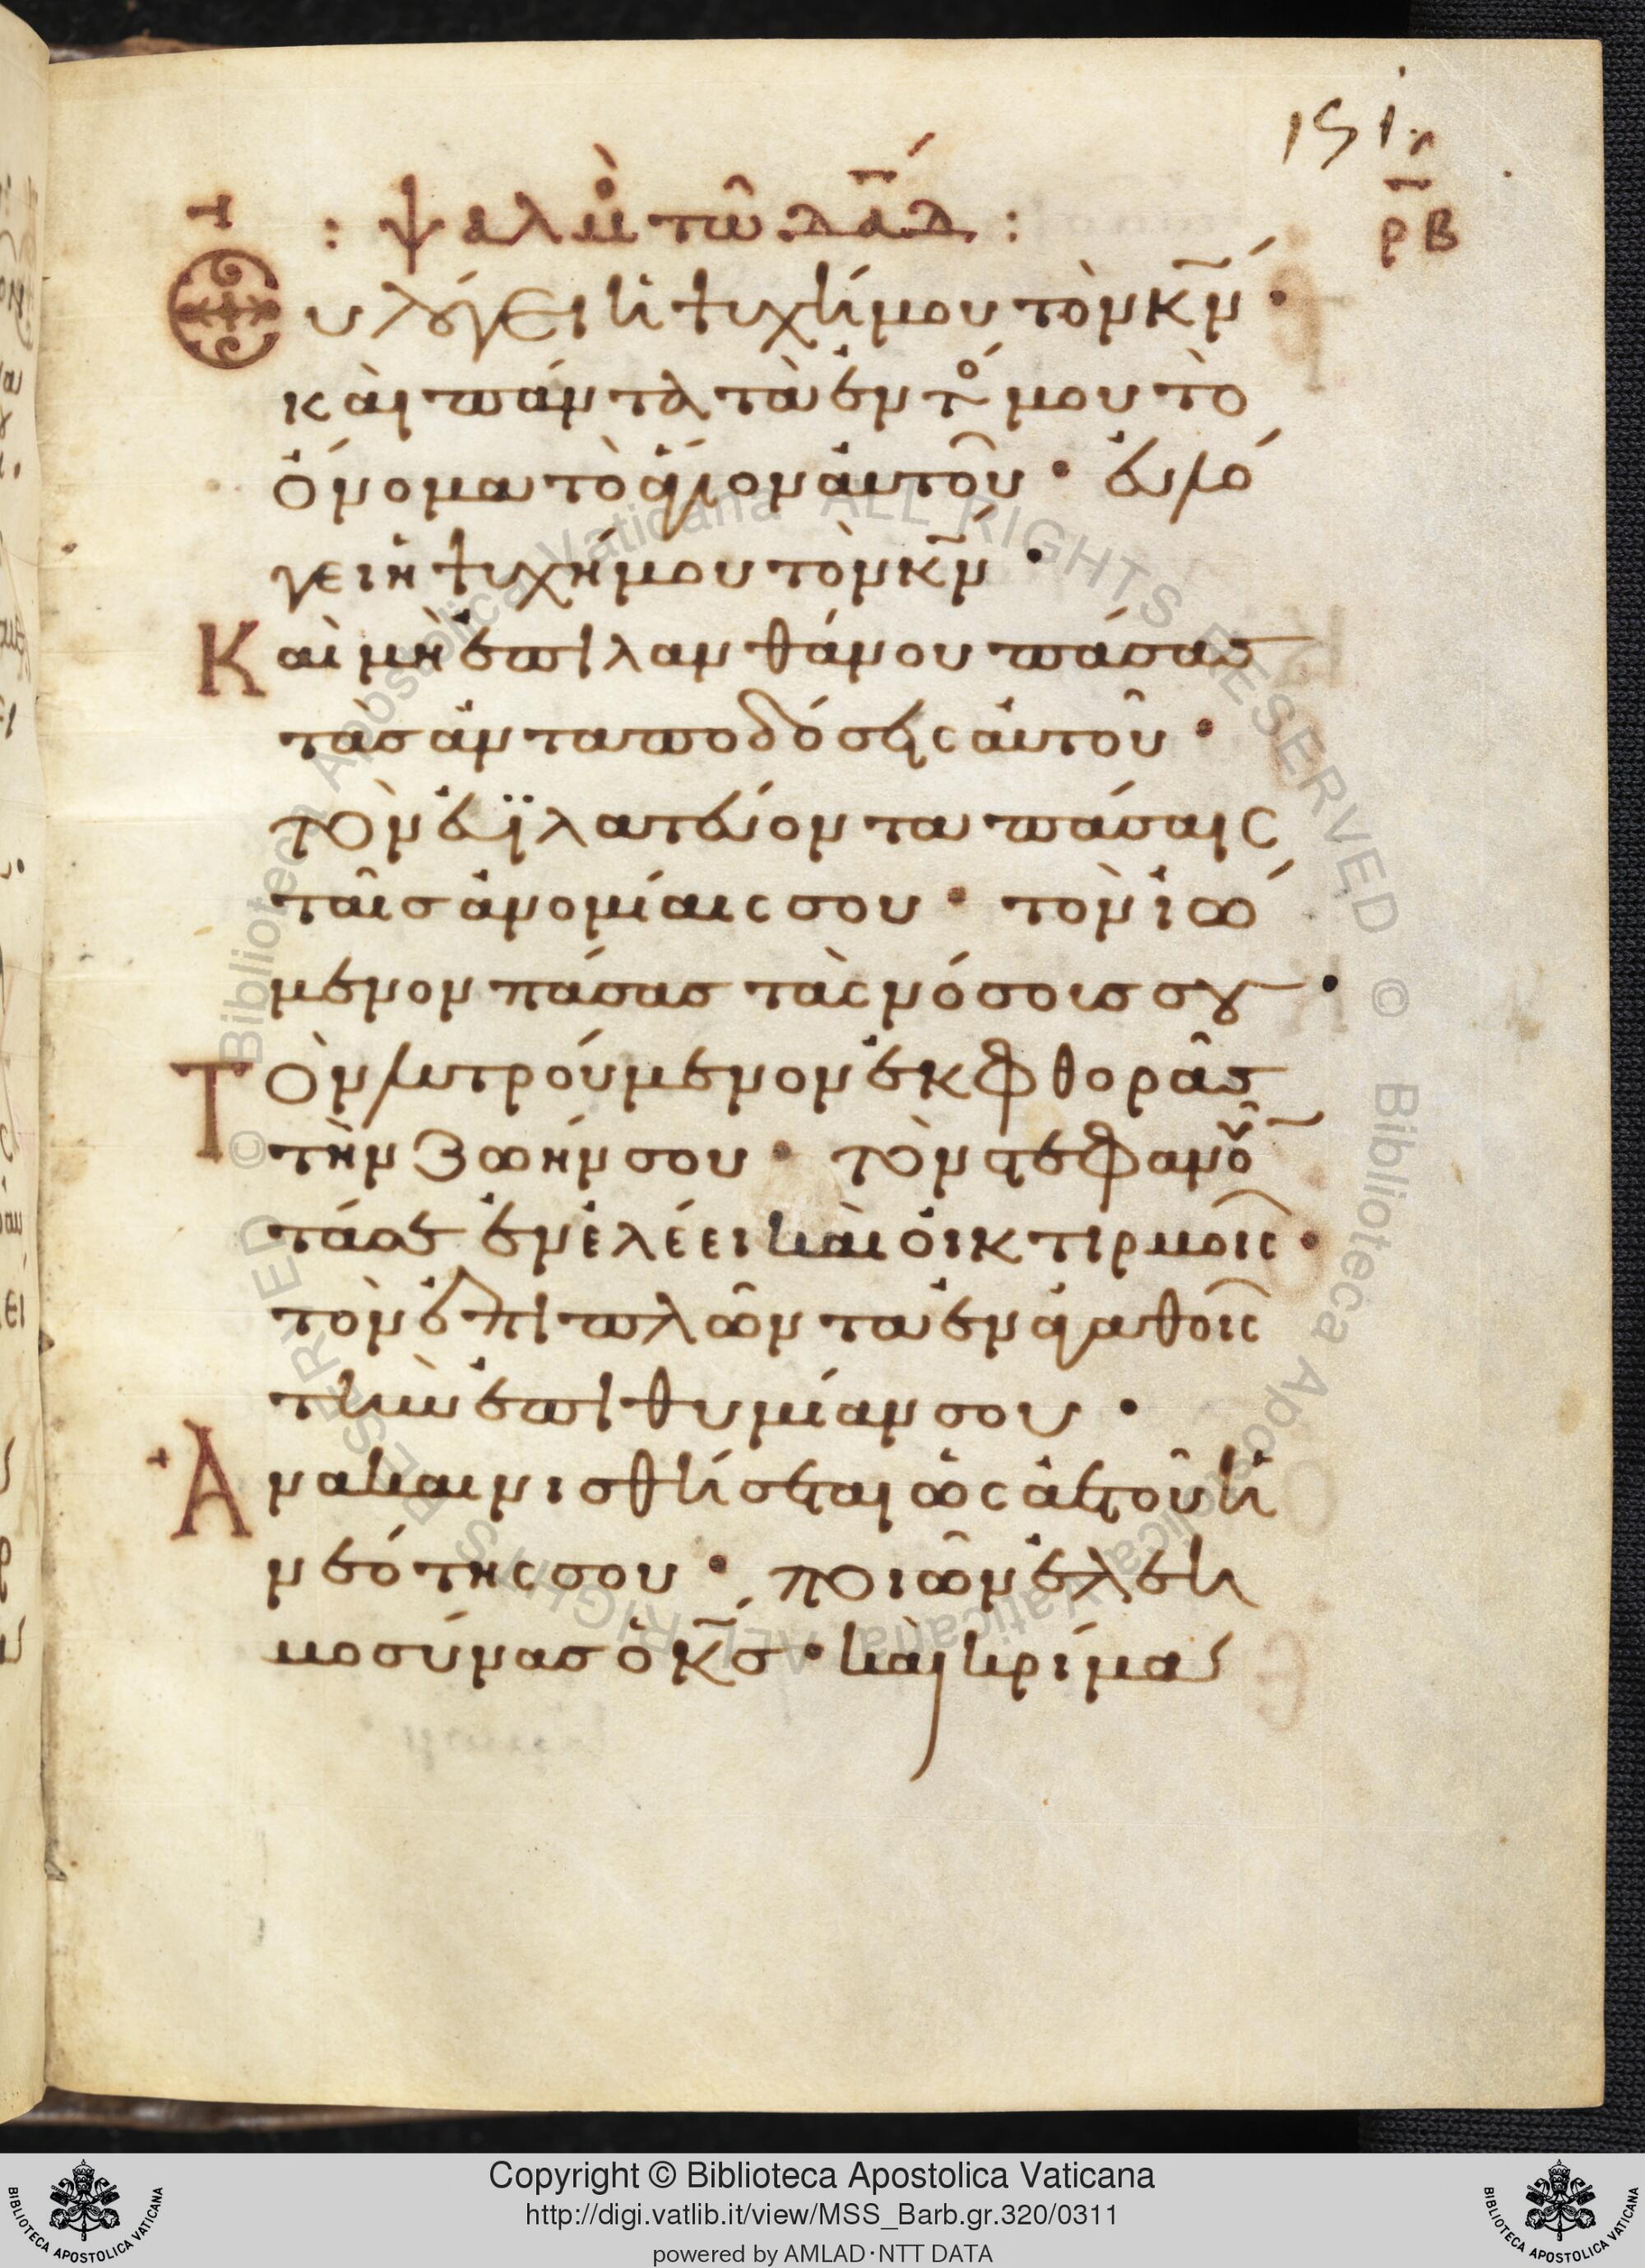 151
ρ̅β̅
: ψαλμὸ τῶ δᾱδ :
Ευλόγει ἡ ψυχή μου τὸν κ̅ν̅·
καὶ πάντα τὰ ἐντός μου τὸ
ὄνομα τὸ ἅγιον ἀυτοῦ· ἐυλό
γει ἡ ψυχή μου τὸν κ̅ν̅·
Καὶ μὴ ἐπιλανθάνου πάσας
τὰσ ἀνταποδόσεις ἀυτοῦ·
τὸν ἐϊλατεύοντα πάσαις
ταῖσ ἀνομίαις σου· τὸν ἰώ
μενον πάσας τὰς νόσους σου·
Τὸν λυτρούμενον ἐκ φθορᾶς
τὴν ζωήν σου· τὸν στεφανοῦν
τά σε ἐν ἐλέει καὶ οἰκτιρμοῖς·
τὸν ἐπιπλῶντα ἐν ἀγαθοῖς
τὴν ἐπιθυμίαν σου·
Ἀνακαινισθήσεται ὡς ἀετοῦ ἡ
νεότης σου· ποιῶν ἐλεη
μοσύνασ ὁ κ̅σ̅· καὶ κρίμα
© Biblioteca Apostolica Vaticana ALL RIGHTS RESERVED © Biblioteca Apostolica Vaticana ALL RIGHTS RESERVED
Copyright © Biblioteca Apostolica Vaticana
http://digi.vatlib.it/view/MSS_Barb.gr.320/0311
powered by AMLAD·NTT DATA
BIBLIOTECA APOSTOLICA VATICANA
BIBLIOTECA APOSTOLICA VATICANA